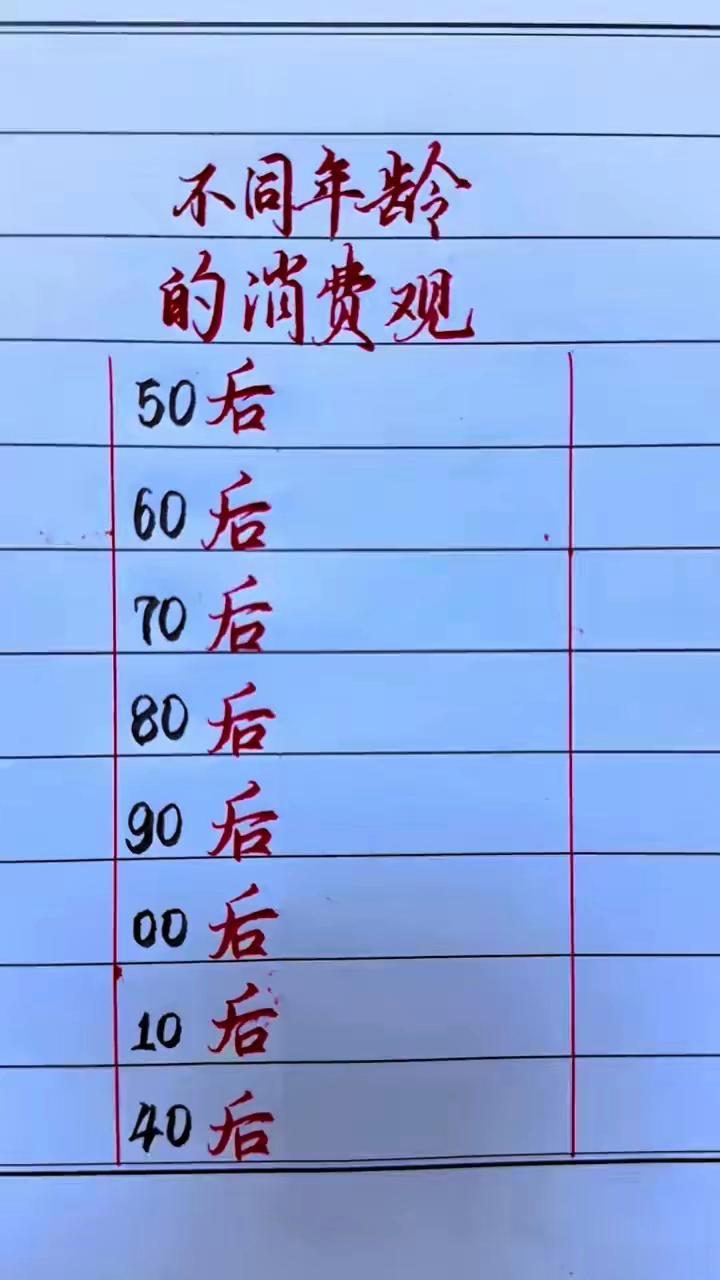 不同年龄
的消费观
50后
60后
70后
80后
90后
00后
10后
40后